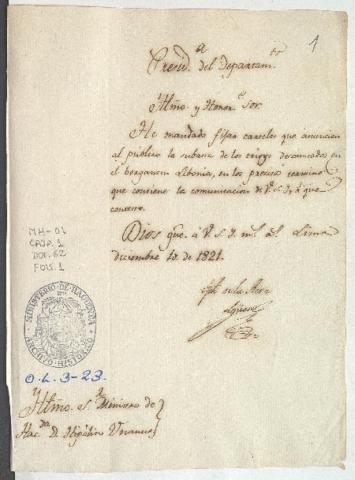 1
Presid.ª del Departam.to
Ylmo. y Honor.e Sor.
He mandado fijar carteles que anuncien
al publico la subasta de los trigos decomisados en
el bergantin Libonia, en los precisos terminos
que contiene la comunicacion de V. S. Y. á que
contexto.
Dios gue. á V. S. Y. m.s a.s Lima
diciembre 12 de 1821.
José de la Riva
Agüero
MH-01
CAJA. 1
DOC. 62
FOLS. 1
MINISTERIO DE HACIENDA
ARCHIVO HISTORICO
O.L. 3-23.
Ylmo. S.r Ministro de
Hac.da D. Hipolito Unanue